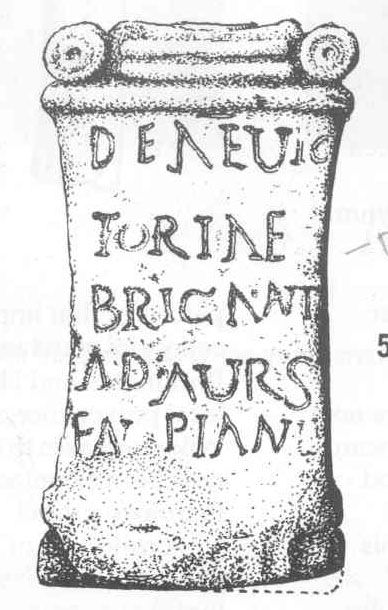 DEAEUIC
TORIAE
BRIGANT
AD AURS
PIAN
5